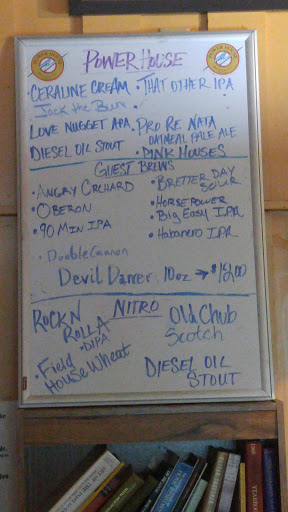 POWER HOUSE
• CERALINE CREAM
• THAT OTHER IPA
Jack the Bum
LOVE NUGGET APA
PRO RE NATA
OATMEAL PALE ALE
DIESEL OIL STOUT
• PINK HOUSES
GUEST BREWS
• ANGRY ORCHARD
• BRETTER DAY
SOUR
• OBERON
• HORSEPOWER
• 90 MIN IPA
• Big Easy IPA
• Habanero IPA
• Double Cannon
Devil Dancer 10oz → $16.00
NITRO
ROCKN
ROLLA
• DIPA
Old Chub
Scotch
• Field
House Wheat
DIESEL OIL
STOUT